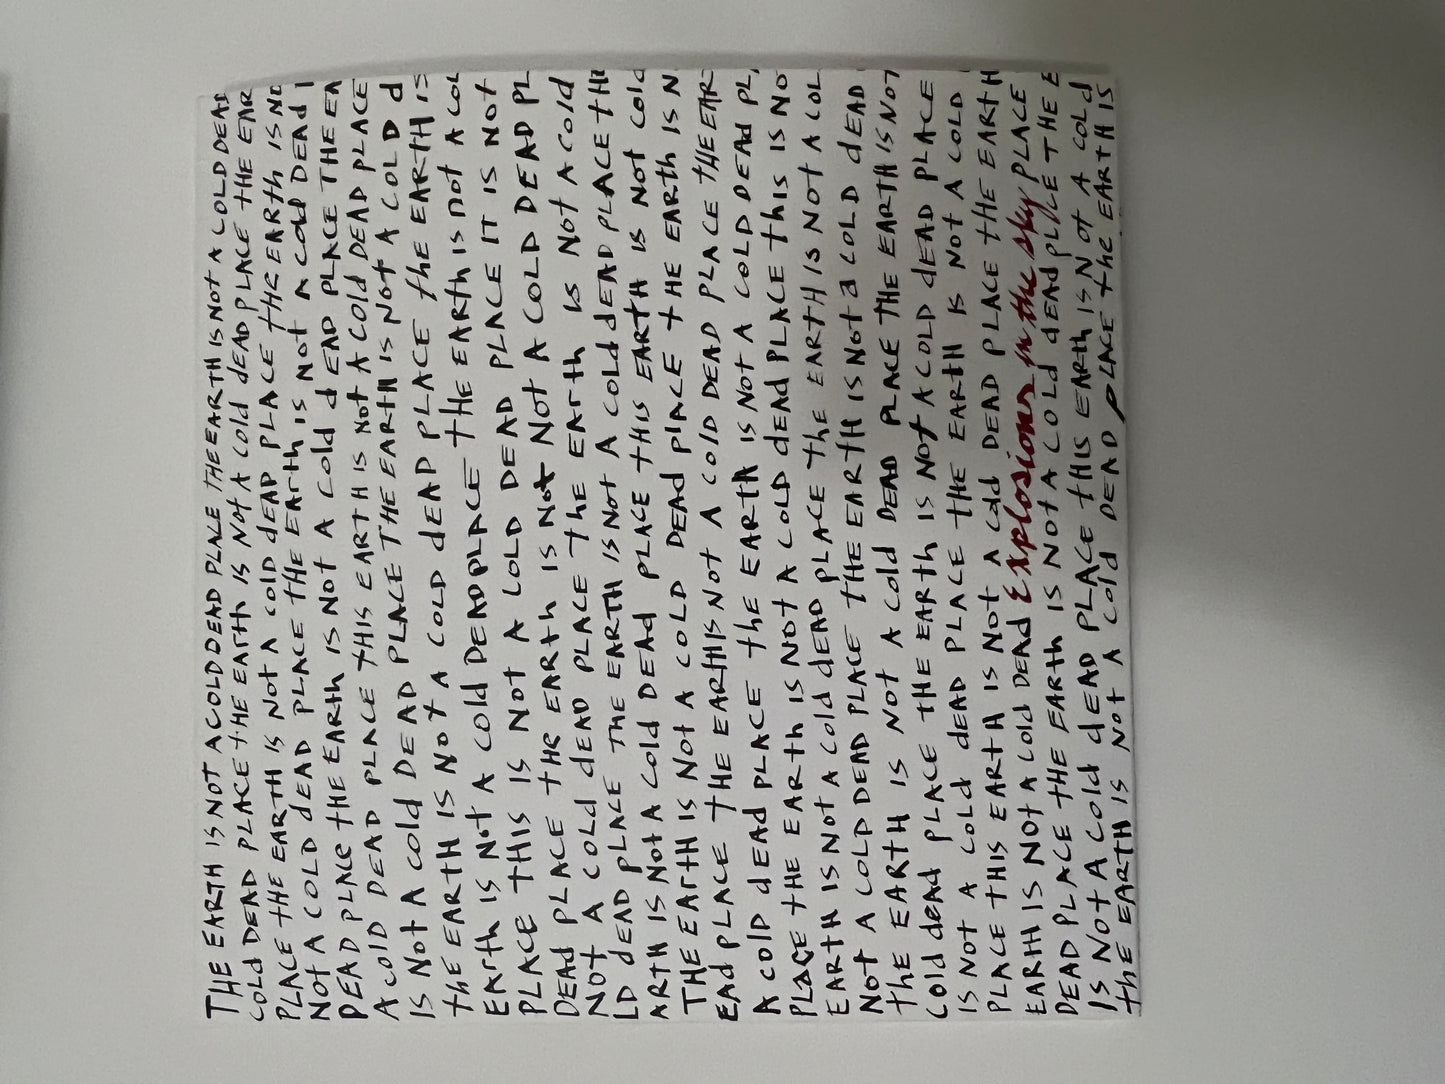 THE EARTH IS NOT A COLD DEAD PLACE THE EARTH IS NOT A COLD DEAD
COLD DEAD PLACE THE EARTH IS NOT A COLD DEAD PLACE THE EAR
PLACE THE EARTH IS NOT A COLD DEAD PLACE THE EARTH IS NO
NOT A COLD DEAD PLACE THE EARTH IS NOT A COLD DEAD
DEAD PLACE THE EARTH IS NOT A COLD DEAD PLACE THE EA
A COLD DEAD PLACE THIS EARTH IS NOT A COLD DEAD PLACE
IS NOT A COLD DEAD PLACE THE EARTH IS NOT A COLD d
the EARTH IS NOT A COLD dEAD PLACE the EARTH IS
EARTH IS NOT A COLD DEAD PLACE THE EARTH IS NOT A COL
PLACE THIS IS NOT A COLD DEAD PLACE IT IS NOT
DEAD PLACE THE EARTH IS NOT NOT A COLD DEAD PL
NOT A COLD dEAD PLACE the EARTH IS NOT A COLD
LD dEAD PLACE THE EARTH IS NOT A COLD dEAD PLACE THE
ARTH IS NOT A COLD DEAD PLACE THIS EARTH IS NOT COLD
THE EARTH IS NOT A COLD DEAD PLACE tHE EARTH IS N
EAD PLACE THE EARTH IS NOT A COLD DEAD PLACE THE EAR
A COLD dEAD PLACE the EARTH IS NOT A COLD DEAD PL
PLACE THE EARTH IS NOT A COLD dEAD PLACE this IS NO
EARTH IS NOT A COLD dEAD PLACE the EARTH IS NOT A COL
NOT A COLD DEAD PLACE THE EARTH IS NOT a COLD dEAD
the EARTH IS NOT A COLD DEAD PLACE THE EARTH IS NOT
COLD dEAD PLACE THE EARTH IS NOT A COLD DEAD PLACE
IS NOT A COLD dEAD PLACE THE EARTH IS NOT A COLD
PLACE THIS EARTH IS NOT A COLD DEAD PLACE THE EARTH
EARTH IS NOT A COLD DEAD Explosions in the sky PLACE
DEAD PLACE THE EARTH IS NOT A COLD DEAD PLACE THE E
IS NOT A COLD dEAD PLACE THIS EARTH IS NOT A COLD
the EARTH IS NOT A COLD DEAD PLACE the EARTH IS